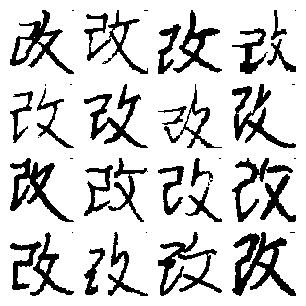 改改改改
改改改改
改改改改
改改改改